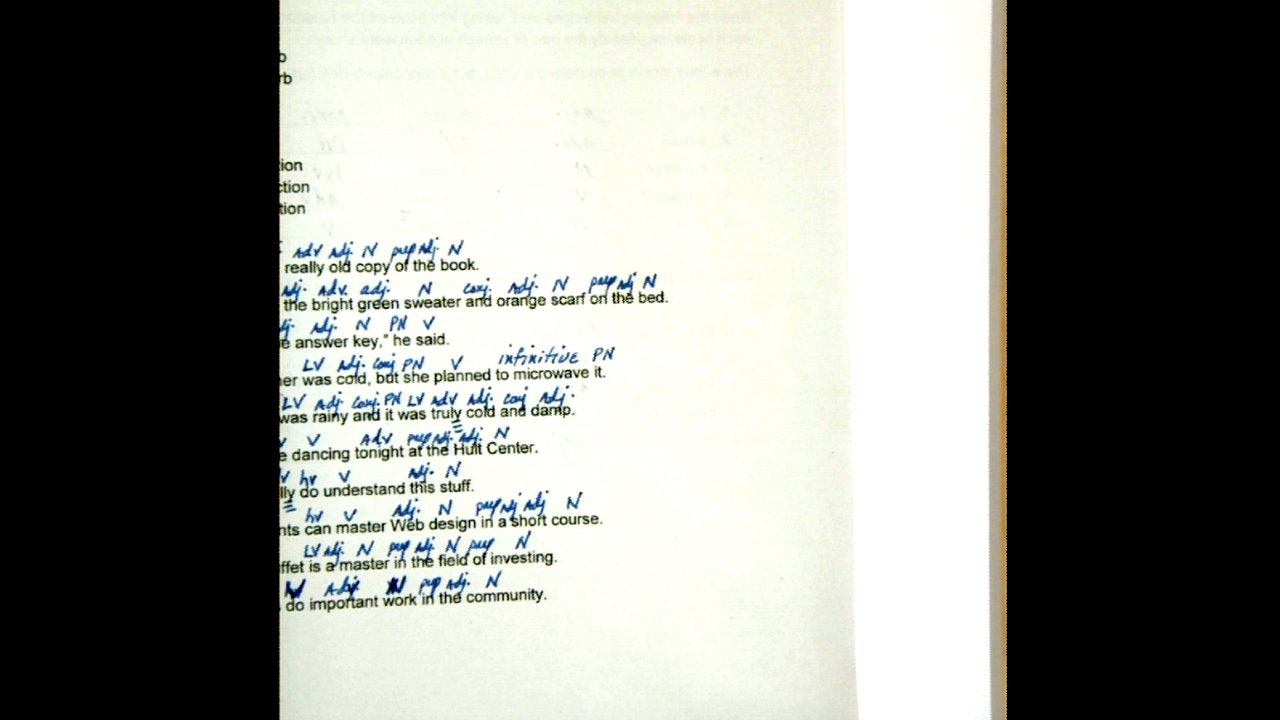 rb
ion
ction
tion
Adv Adj. N prep Adj. N
really old copy of the book.
Adj. Adv. adj. N conj. Adj. N prep Adj N
the bright green sweater and orange scarf on the bed.
Adj. N PN V
e answer key," he said.
LV Adj. Conj PN V infinitive PN
her was cold, but she planned to microwave it.
LV Adj Conj. PN LV Adv Adj. conj Adj.
was rainy and it was truly cold and damp.
V Adv prep Adj. Adj. N
e dancing tonight at the Hult Center.
hv V Adj. N
lly do understand this stuff.
hv V Adj. N prep Adj Adj N
nts can master Web design in a short course.
LV Adj. N prep Adj N prep N
ffet is a master in the field of investing.
V Adj N prep Adj. N
do important work in the community.